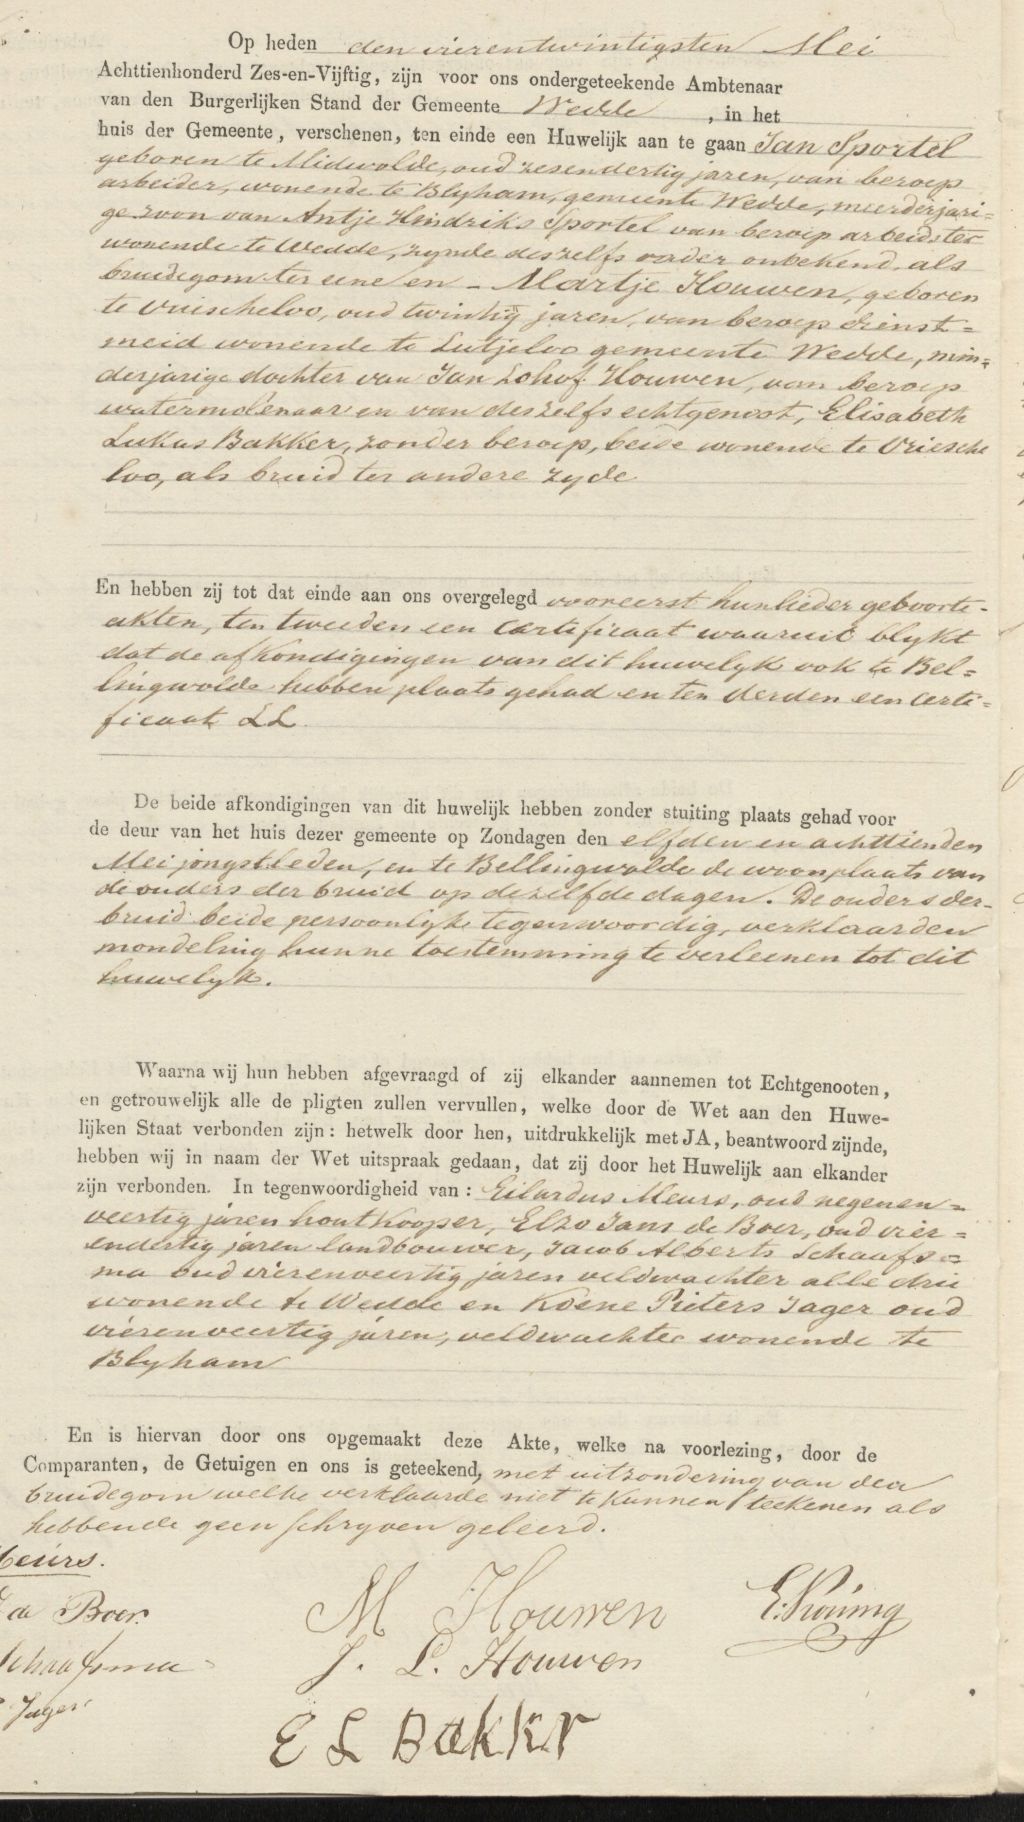 Op heden den vierentwintigsten Mei
Achttienhonderd Zes-en-Vijftig, zijn voor ons ondergeteekende Ambtenaar
van den Burgerlijken Stand der Gemeente Wedde, in het
huis der Gemeente, verschenen, ten einde een Huwelijk aan te gaan Jan Sportel
geboren te Midwolde, oud zesendertig jaren, van beroep
arbeider, wonende te Blyham, gemeente Wedde, meerderjari-
ge zoon van Antje Hindriks Sportel van beroep arbeidster
wonende te Wedde, zynde deszelfs vader onbekend, als
bruidegom ter eene en - Martje Houwen, geboren
te Vriescheloo, oud twintig jaren, van beroep dienst=
meid wonende te Lutjeloo gemeente Wedde, min=
derjarige dochter van Jan Lohof Houwen, van beroep
watermolenaar en van deszelfs echtgenoot, Elisabeth
Lukas Bakker, zonder beroep, beide wonende te Vriesche
loo, als bruid ter andere zyde
En hebben zij tot dat einde aan ons overgelegd vooreerst hunlieder geboorte-
akten, ten tweeden een certificaat waaruit blykt
dat de afkondigingen van dit huwelyk ook te Bel=
lingwolde hebben plaats gehad en ten derden een certi=
ficaat LL
De beide afkondigingen van dit huwelijk hebben zonder stuiting plaats gehad voor
de deur van het huis dezer gemeente op Zondagen den elfden en achttienden
Mei jongstleden, en te Bellingwolde de woonplaats van
de ouders der bruid op dezelfde dagen. De ouders der
bruid beide persoonlyk tegenwoordig, verklaarden
mondeling hunne toestemming te verleenen tot dit
huwelyk.
Waarna wij hun hebben afgevraagd of zij elkander aannemen tot Echtgenooten,
en getrouwelijk alle de pligten zullen vervullen, welke door de Wet aan den Huwe-
lijken Staat verbonden zijn: hetwelk door hen, uitdrukkelijk met JA, beantwoord zijnde,
hebben wij in naam der Wet uitspraak gedaan, dat zij door het Huwelijk aan elkander
zijn verbonden. In tegenwoordigheid van: Eilardus Meurs, oud negenen=
veertig jaren houtkooper, Elzo Jans de Boer, oud vier=
endertig jaren landbouwer, Jacob Alberts Schaafs=
ma oud vierenveertig jaren veldwachter alle drie
wonende te Wedde en Koene Pieters Jager oud
vierenveertig jaren, veldwachter wonende te
Blyham
En is hiervan door ons opgemaakt deze Akte, welke na voorlezing, door de
Comparanten, de Getuigen en ons is geteekend, met uitzondering van den
bruidegom welke verklaarde niet te kunnen teekenen als
hebbende geen schryven geleerd.
Meurs.
de Boer.
Schaafsma
Jager
M Houwen
J. L. Houwen
E L Bakker